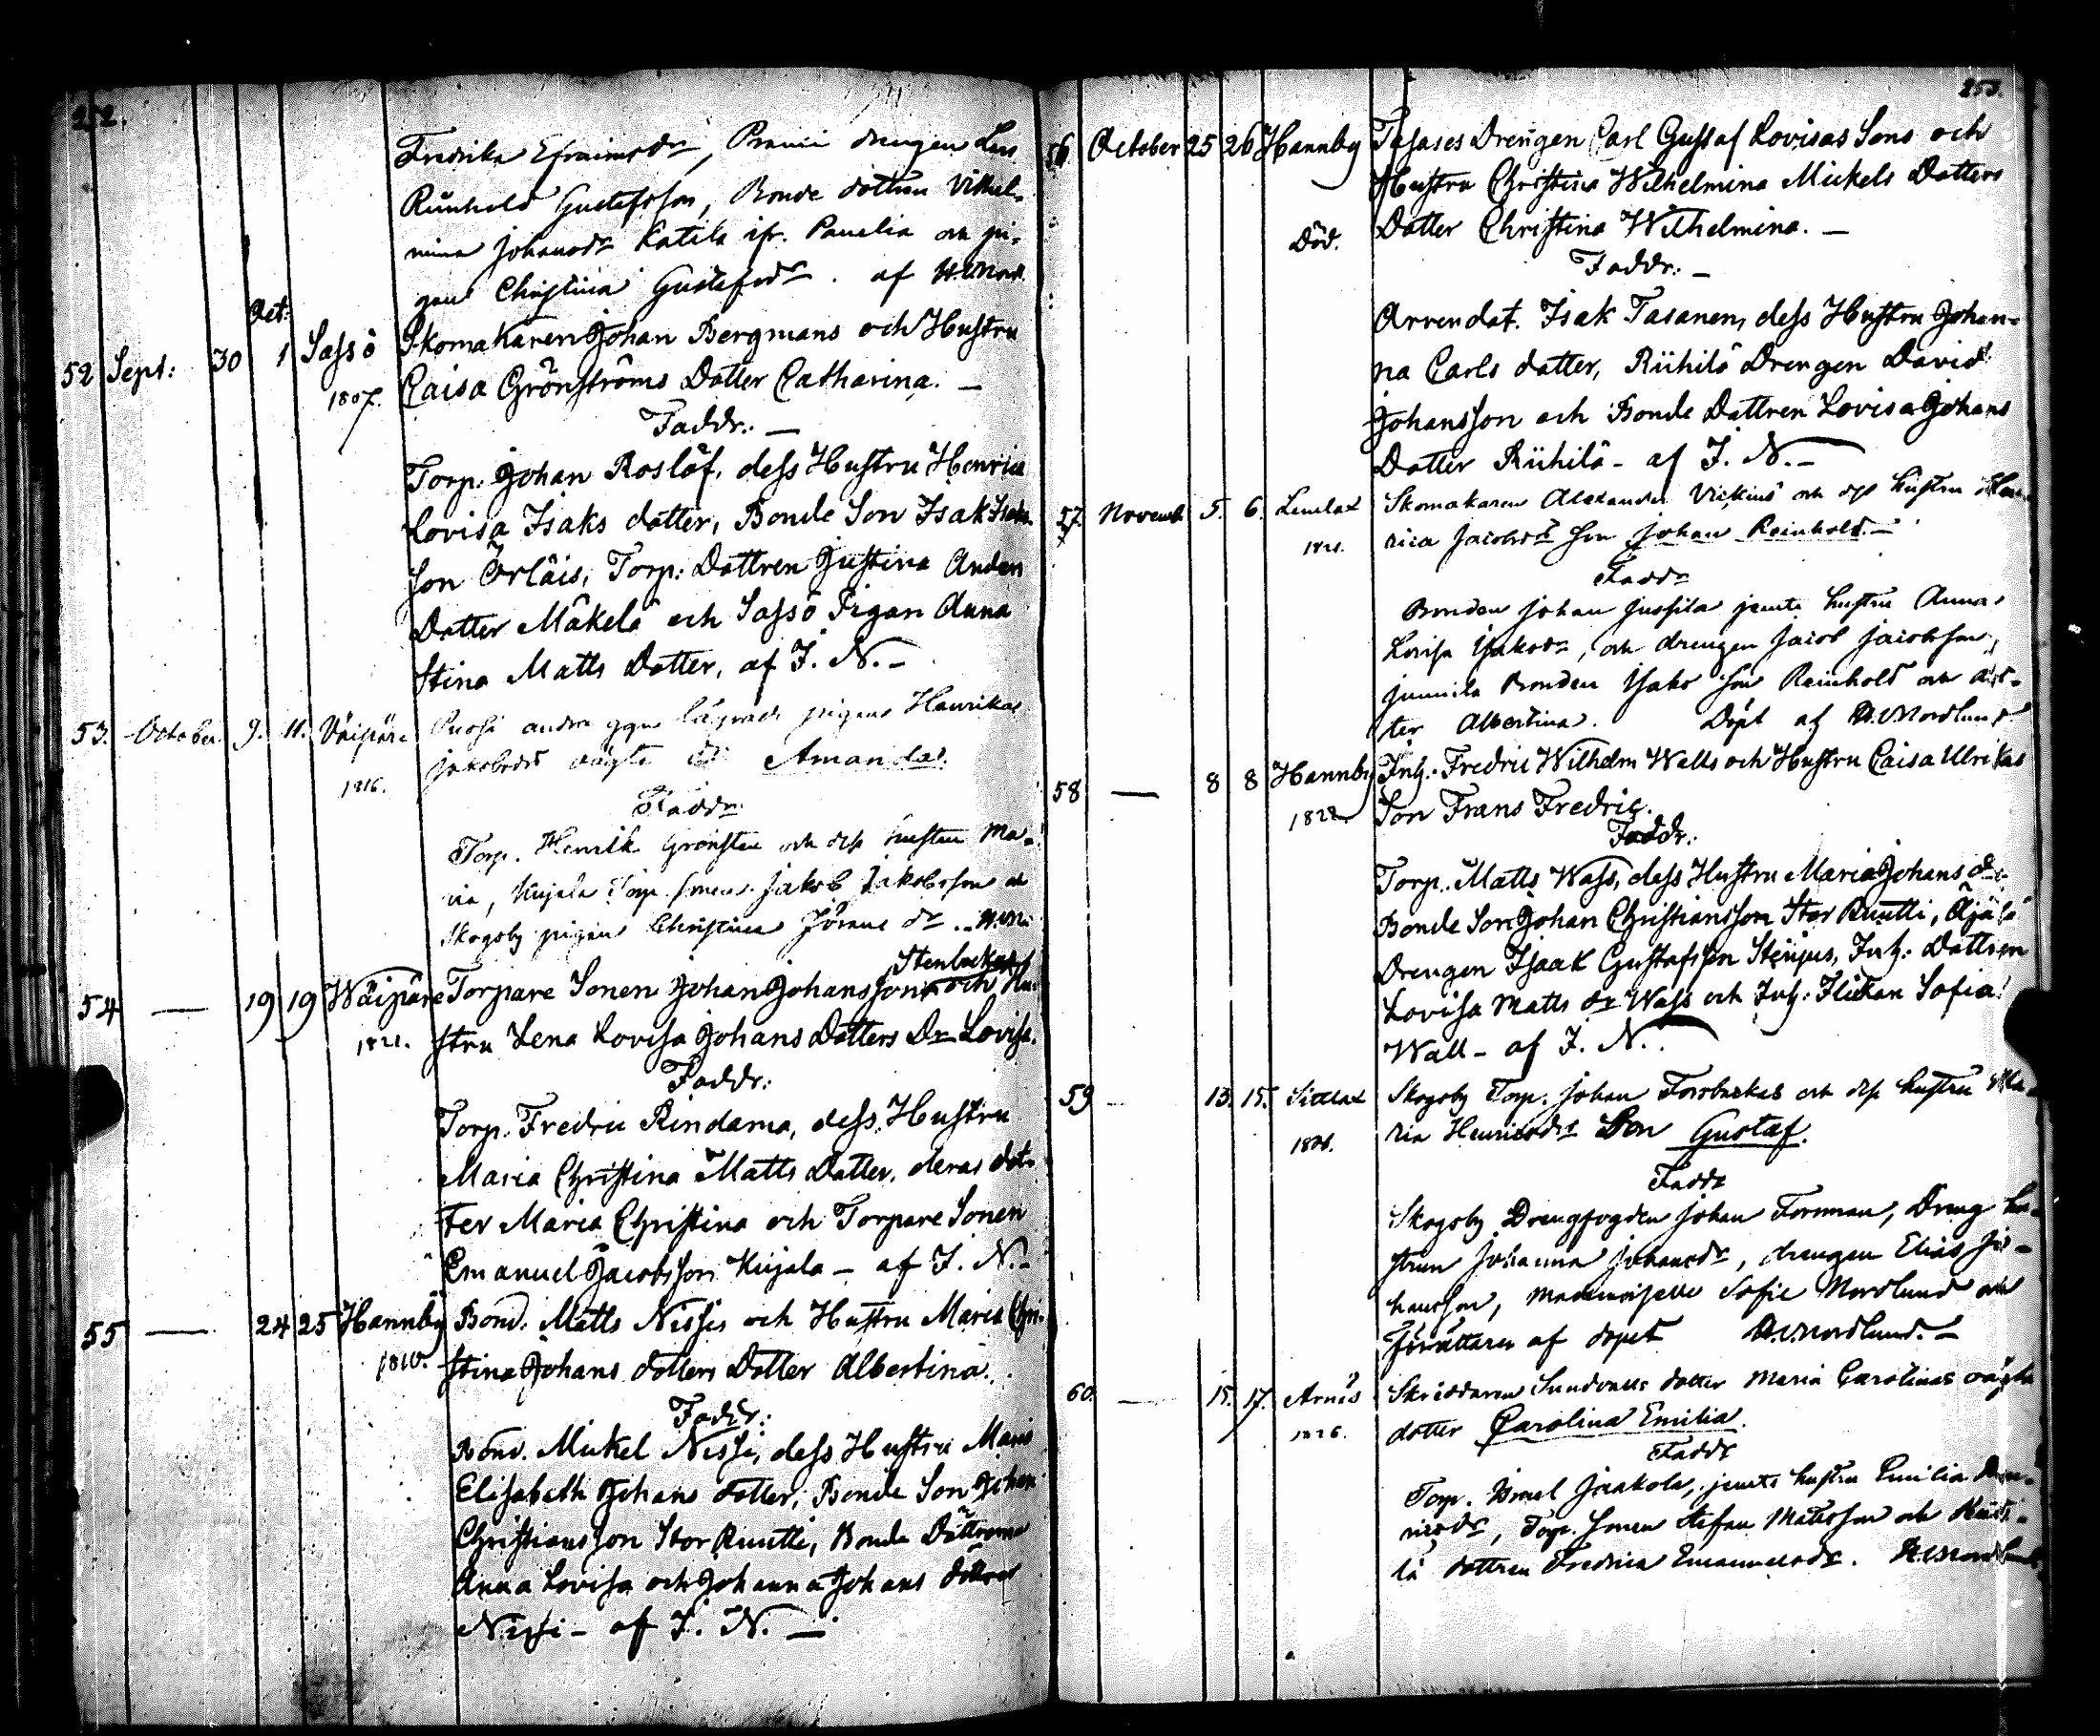 252.
Fredrika Efraimsdr, drengen
Reinhold Gustafsson, Bonde dottren Vilhel-
mina Johansdr Katila ifr. Panelia och pi-
gan Christina Gustafsdr. af
52 Sept: 30 Oct: 1 Sassö Skomakaren Johan Bergmans och Hustru
1807. Caisa Grönströms Datter Catharina. —
Faddr: —
Torp. Johan Roslöf, dess Hustru Henrica
Lovisa Isaks datter, Bonde Son Isak Isaks
son Örläis, Torp: Dattren Justina Anders
Datter Mäkelä och Sassö Pigan Anna
Stina Matts Datter, af J. N. —
53. October. 9. 11. Väipäre andra ggn lägrade pigans Henrikas
1816. Jakobsdrs oägta dr Amanda.
Faddr
Torp. Henrik Grönsten och dess hustru Ma-
ria, Kujala Torp. sonen Jakob Jakobsson och
Skogsby pigan Christina Jörans dr.
54 — 19 19 Wäipäre Torpare Sonen Johan Johansson Stenbackas och Hu-
1821. stru Lena Lovisa Johans Datters Dr Lovisa.
Faddr:
Torp. Fredric Rindama, dess Hustru
Maria Christina Matts Datter, deras dot-
ter Maria Christina och Torpare Sonen
Emanuel Jacobsson Kujala — af J. N. —
55 — 24 25 Hannby Bond. Matts Nissis och Hustru Maria Chri-
1810. stina Johans dotters Datter Albertina.
Faddr:
Bond. Mickel Nissi, dess Hustru Maria
Elisabeth Johans datter, Bonde Son Johan
Christiansson Stor Ruutti, Bonde Döttrarna
Anna Lovisa och Johanna Johans döttrar
Nissi — af J. N. —
253.
56 October 25 26 Hannby Tasases Drengen Carl Gustaf Lovisas Sons och
Hustru Christina Wilhelmina Mickels Datters
Död. Datter Christina Wilhelmina. —
Faddr: —
Arrendat. Isak Tasanen, dess Hustru Johan-
na Carls datter, Riihilä Drengen David
Johansson och Bonde Dattren Lovisa Johans
Datter Riihilä — af J. N. —
57. Novemb 5. 6. Lemlax Skomakaren Alexander Vickius och dess hustru Hen-
1821. rica Jacobsdrs son Johan Reinhold. —
Faddr
Bonden Johan Jussila jemte hustru Anna
Lovisa Isaksdr, och drengen Jacob Jacobsson,
Junnila Bonden Isaks son Reinhold och dot-
ter Albertina. Döpt af Nordlund
58 — 8 8 Hannby Inh. Fredric Wilhelm Walls och Hustru Caisa Ulrikas
1822 Son Frans Fredric.
Faddr:
Torp. Matts Wass, dess Hustru Maria Johans dr
Bonde Son Johan Christiansson Stor Ruutti, Äjälä
Drengen Isaak Gustafsson Stenjus, Inh: Dattren
Lovisa Matts dr Wass och Inh: Flickan Sofia
Wall — af J. N.
59 — 13. 15. Sittlax Skogsby Torp. Johan Forsbackas och dess hustru Ma-
1826. ria Henricsdrs Son Gustaf.
Faddr
Skogsby Drengfogden Johan Forsman, Dreng hu-
strun Johanna Johansdr, drengen Elias Jo-
hansson, Mademoiselle Sofie Nordlund och
förrättaren af dopet Nordlund. —
60. — 15. 17. Arnäs Skräddaren Sundvalls dotter Maria Carolinas oägta
1826. dotter Carolina Emilia.
Faddr
Torp. Israel Jaakola, jemte hustru Emilia Hen-
ricsdr, Torp. Sonen Stefan Matsson och
lä dottren Fredrica Emanuelsdr. Nordlund